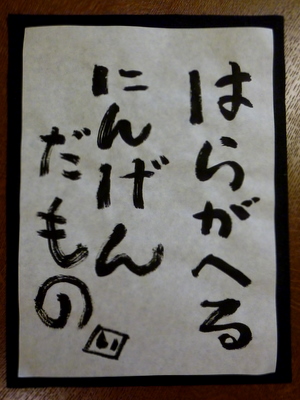 はらがへる
にんげん
だもの
い